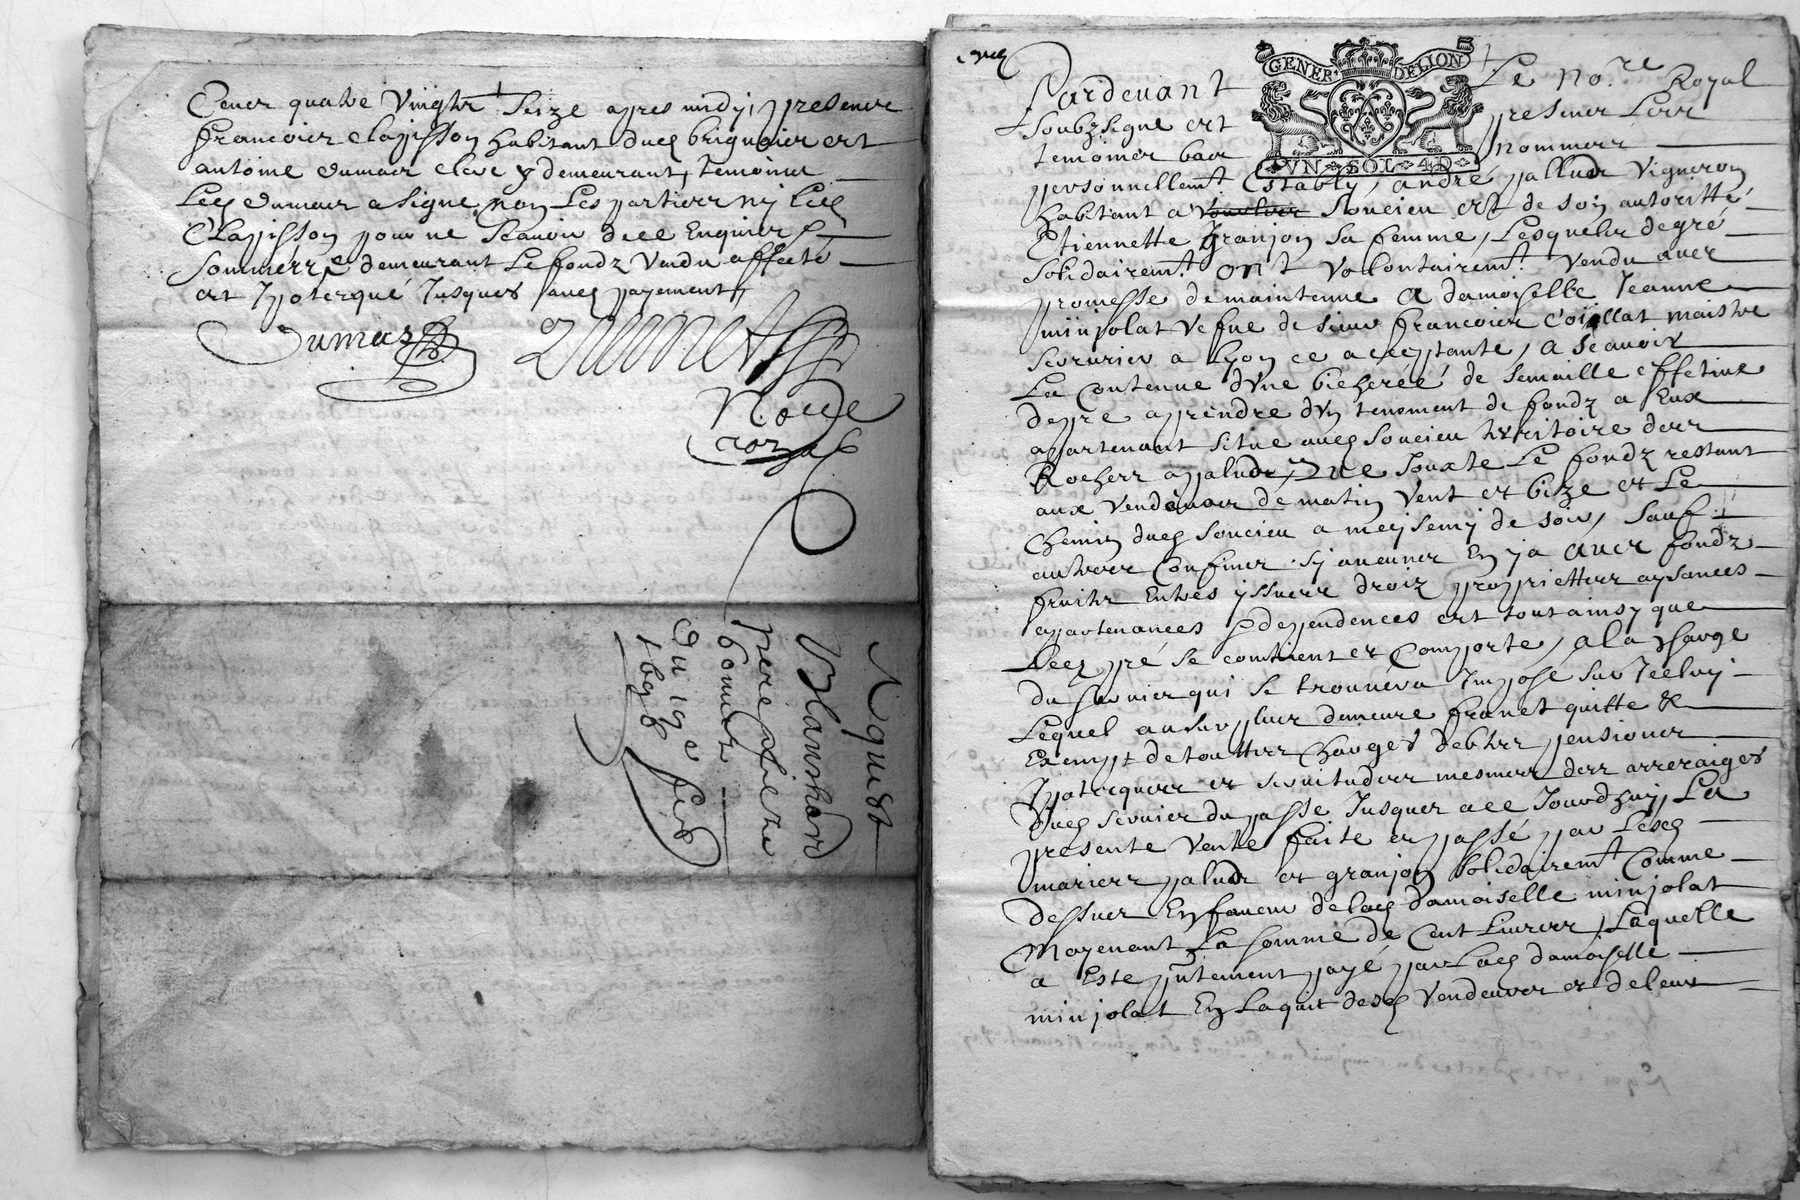 Cens quatre vingtz seize apres midy, presence
francois clapisson habitant dud brignais et
antoine dumas clerc y demeurant, temoins
Led dumas a signé non les parties ny led
Clapisson pour ne scavoir de ce enquis &
sommés demeurant le fondz vendu affecté
et Ipotecqué Jusques aud payement,
Dumas
No
croza
Acquest
Blanchard
du 19e feb
1698
GENER. DE LION
VN SOL 4 D
Pardevant Le No.re Royal
soubzsigné et presens Les
temoins bas nommez
personnellemt. Estably, andré pallud Vigneron
habitant a Soucieu et de son autoritté
Etiennette granjon sa femme, Lesquels de gré
solidairemt. ont volontairemt. vendu avec
promesse de maintenue A damoiselle Jeanne
minjolat vefue de sieur francois coillat maistre
serrurier a lyon ce acceptante, A scavoir
La Contenue d'Vne bicherée de semaille effetive
de pré a prendre d'Vn tenement de fondz a Eux
appartenant situé aud Soucieu territoire des
Rochers apalud, Jouxte Le fondz restant
aux Vendeurs de matin vent et bize et Le
Chemin dud Soucieu a meysemy de soir, sauf
autres Confins sy aucuns En y a avec fondz
fruitz Entrés yssues droiz proprietter aysances
appartenances & deppendences et tout ainsy que
Led pré se contient et Comporte, a la charge
du servis qui se trouvera Imposé sur Icelluy
Lequel au surplus demeure franct quitte &
Exempt de touttes charges debtes pensions
Ipotecques et servitudes mesmes des arreraiges
dud servis du passé Jusques a ce Jourd'huy, La
presente vente faite et passé par Lesd
maries palud et granjon solidairemt. Comme
dessus En faveur de lad damoiselle minjolat
Moyenant La somme de Cent Livres, Laquelle
a Esté pntement payé par Lad damoiselle
minjolat En Laquit desd Vendeurs et de leur